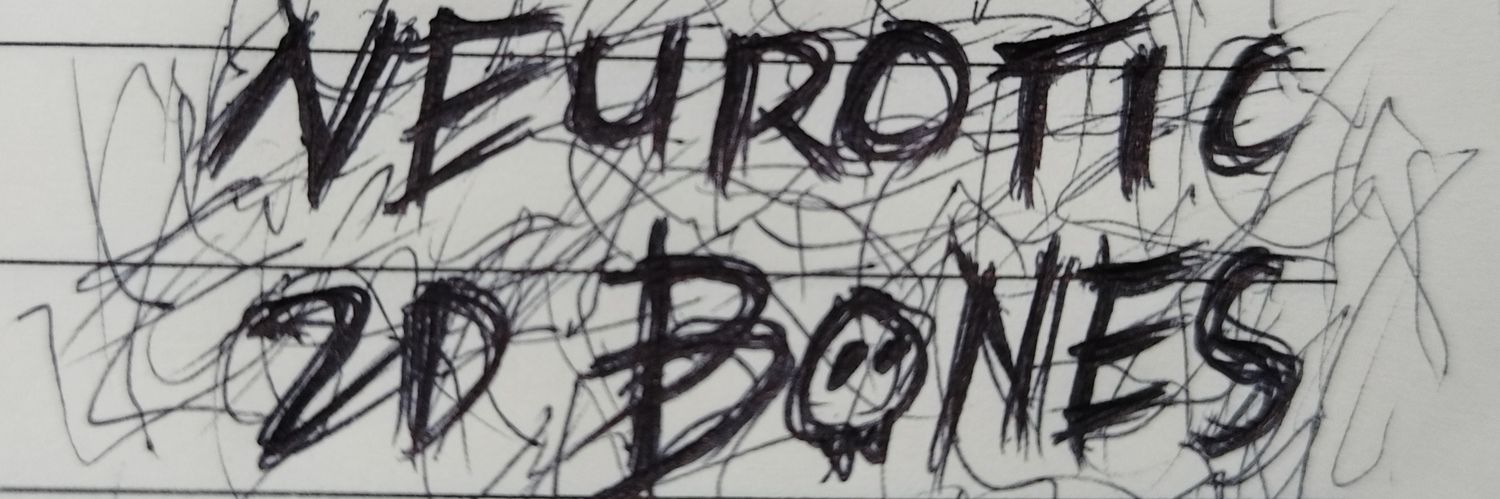 NEUROTIC
2D BONES